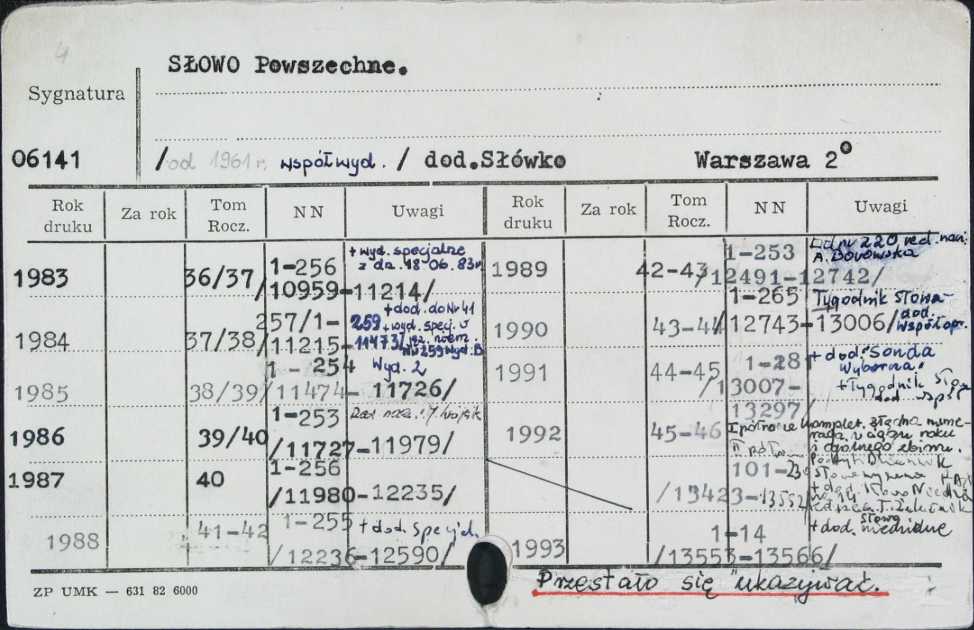 4
SŁOWO Powszechne.
Sygnatura
06141 /od 1961 r. współwyd. / dod.Słówko Warszawa 2°
Rok druku Za rok Tom Rocz. NN Uwagi Rok druku Za rok Tom Rocz. NN Uwagi
1983 36/37/ 1-256 /10959-11214/ + wyd. specjalne z dn. 18.06.83r
1984 37/38/ 257/1- 11215- 259 11473/ + dod. do Nr 41 + wyd. specj. Nr 259 wyd. B
1985 38/39/ 1 - 254 11474- 11726/ Wyd. 2
1986 39/40 1-253 /11727-11979/
1987 40 1-256 /11980-12235/
1988 41-42 1-255 /12236-12590/ + dod. specj.
1989 42-43 1-253 /12491-12742/ Od nr 220 red. nacz. A. Borowska
1990 43-44 1-265 /12743-13006/ Tygodnik Słowa- dod. współopr.
1991 44-45 1-281 /13007- 13297/ + dod. "Sonda Wyborcza" + Tygodnik Sło dod. współ
1992 45-46 I półrocze komplet. w ciągu roku i ogólnego zbioru. II półrocze
101-230 /13423-13552
1993 1-14 /13553-13566/ + dod. Słowo niedzielne
ZP UMK — 631 82 6000
Przestało się ukazywać.